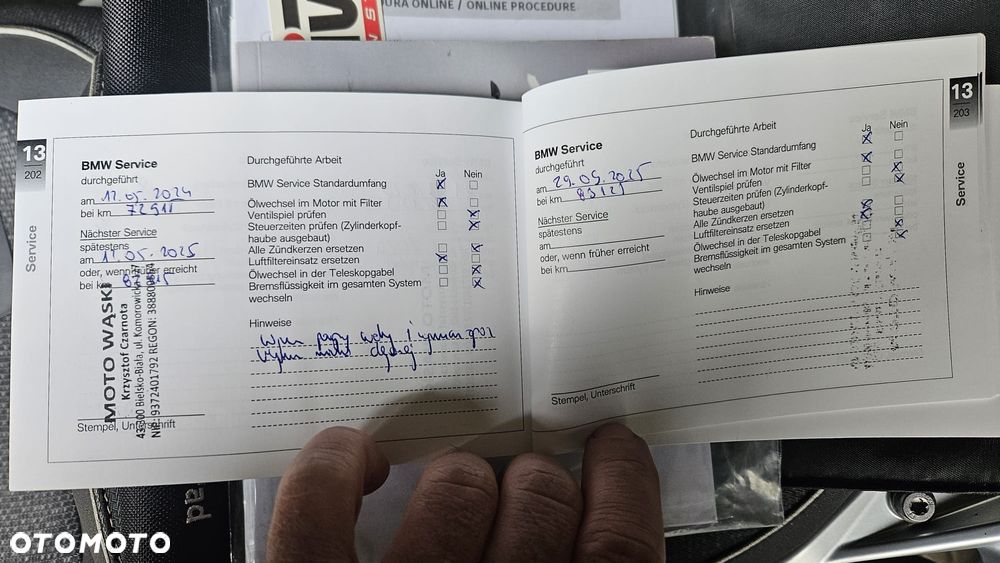 DURA ONLINE / ONLINE PROCEDURE
13
202
Service
BMW Service
durchgeführt
am 12.05.2024
bei km 72911
Nächster Service
spätestens
am 11.05.2025
oder, wenn früher erreicht
bei km
MOTO WĄSKI
Krzysztof Czarnota
Bielsko-Biała, ul. Komorowicka
NIP: 9372401792 REGON:
Stempel, Unterschrift
Durchgeführte Arbeit
Ja Nein
BMW Service Standardumfang
Ölwechsel im Motor mit Filter
Ventilspiel prüfen
Steuerzeiten prüfen (Zylinderkopf-
haube ausgebaut)
Alle Zündkerzen ersetzen
Luftfiltereinsatz ersetzen
Ölwechsel in der Teleskopgabel
Bremsflüssigkeit im gesamten System
wechseln
Hinweise
13
203
Service
BMW Service
durchgeführt
am 29.05.2025
bei km 83121
Nächster Service
spätestens
am
oder, wenn früher erreicht
bei km
Stempel, Unterschrift
Durchgeführte Arbeit
Ja Nein
BMW Service Standardumfang
Ölwechsel im Motor mit Filter
Ventilspiel prüfen
Steuerzeiten prüfen (Zylinderkopf-
haube ausgebaut)
Alle Zündkerzen ersetzen
Luftfiltereinsatz ersetzen
Ölwechsel in der Teleskopgabel
Bremsflüssigkeit im gesamten System
wechseln
Hinweise
OTOMOTO